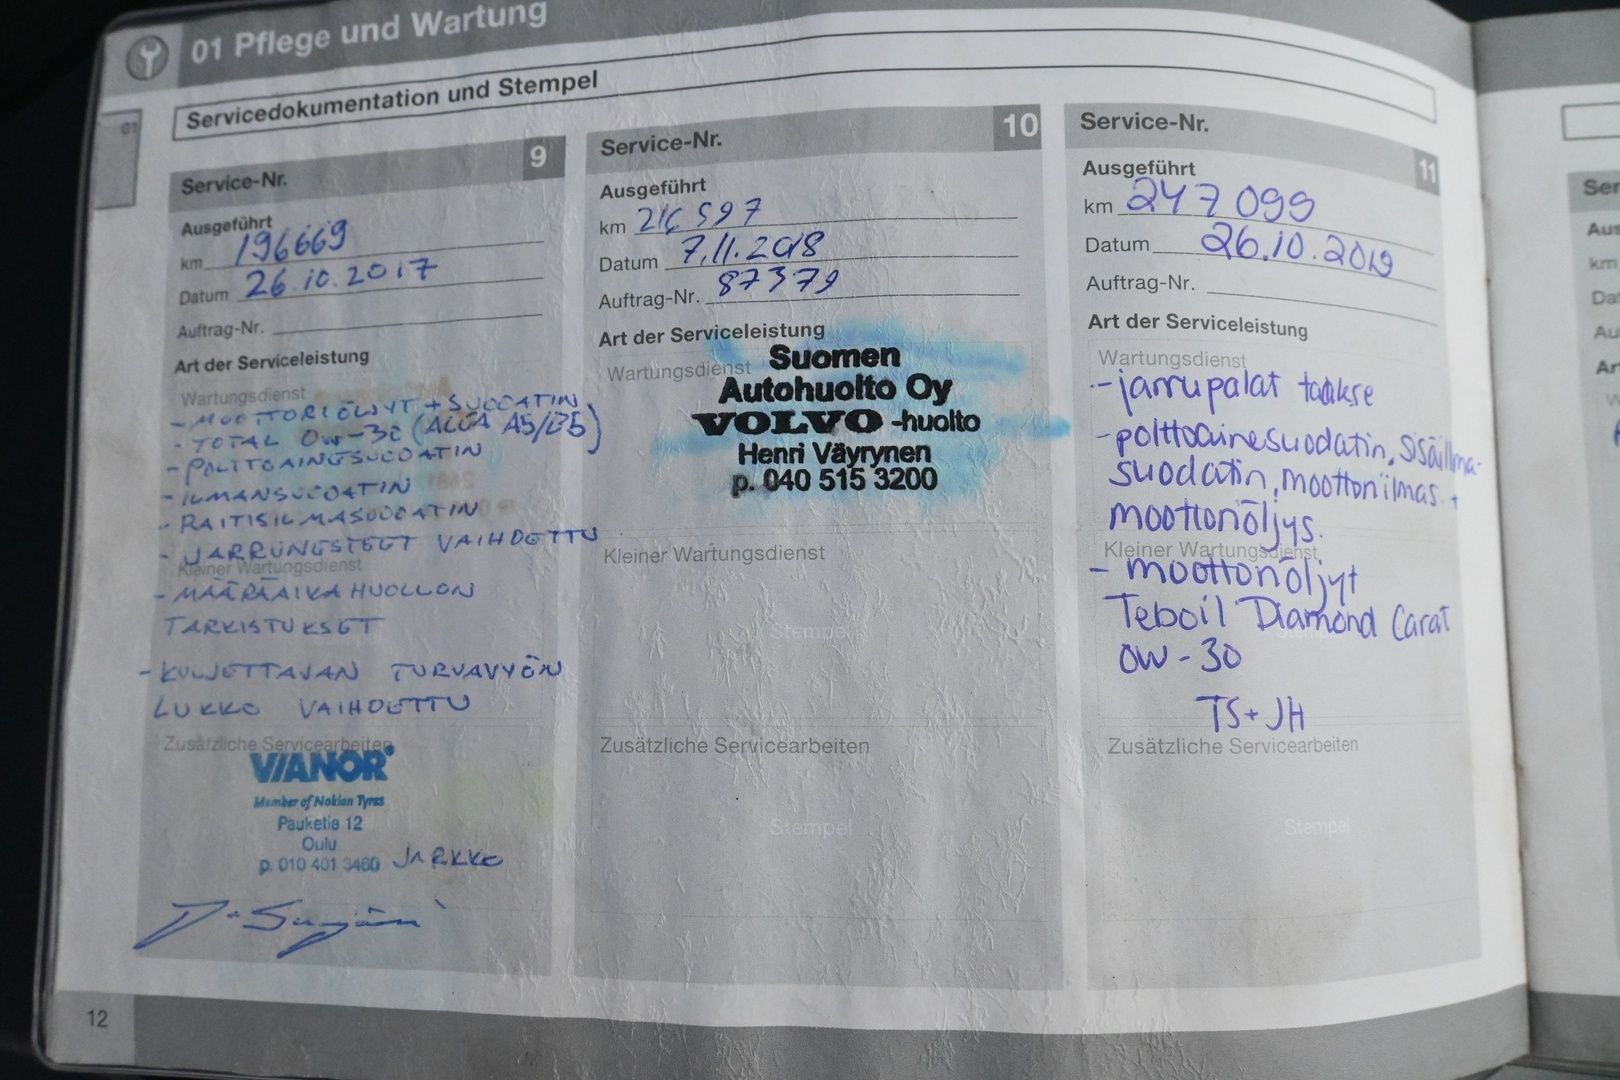 01 Pflege und Wartung
01
Servicedokumentation und Stempel
Service-Nr. 9
Ausgeführt
km 196669
Datum 26.10.2017
Auftrag-Nr.
Art der Serviceleistung
Wartungsdienst
- MOOTTORIÖLJYT + SUODATIN
- TOTAL 0W-30 (ACEA A5/B5)
- POLTTOAINESUODATIN
- ILMANSUODATIN
- RAITISILMASUODATIN
- JARRUNESTEET VAIHDETTU
Kleiner Wartungsdienst
- MÄÄRÄAIKAHUOLLON
TARKISTUKSET
- KULJETTAJAN TURVAVYÖN
LUKKO VAIHDETTU
Zusätzliche Servicearbeiten
VIANOR
Member of Nokian Tyres
Pauketie 12
Oulu
p. 010 401 3460 JARKKO
Service-Nr. 10
Ausgeführt
km 216597
Datum 7.11.2018
Auftrag-Nr. 87379
Art der Serviceleistung
Wartungsdienst
Suomen
Autohuolto Oy
VOLVO -huolto
Henri Väyrynen
p. 040 515 3200
Kleiner Wartungsdienst
Stempel
Zusätzliche Servicearbeiten
Stempel
Service-Nr. 11
Ausgeführt
km 247 099
Datum 26.10.2019
Auftrag-Nr.
Art der Serviceleistung
Wartungsdienst
- jarrupalat taakse
- polttoainesuodatin, sisäilma-
suodatin, moottorilmas. +
moottoriöljys.
Kleiner Wartungsdienst
- moottoriöljyt
Teboil Diamond Carat
Stempel
0W-30
TS+JH
Zusätzliche Servicearbeiten
Stempel
12
Ser
Aus
km
Da
Au
Ar